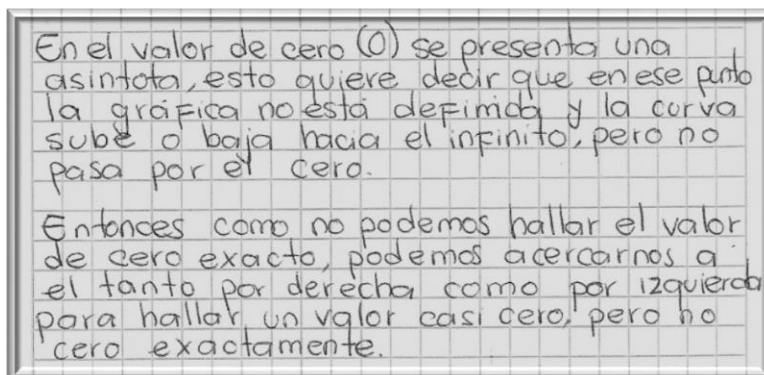 En el valor de cero (0) se presenta una
asintota, esto quiere decir que en ese punto
la gráfica no está definida y la curva
sube o baja hacia el infinito, pero no
pasa por el cero.
Entonces como no podemos hallar el valor
de cero exacto, podemos acercarnos a
el tanto por derecha como por izquierda
para hallar un valor casi cero, pero no
cero exactamente.